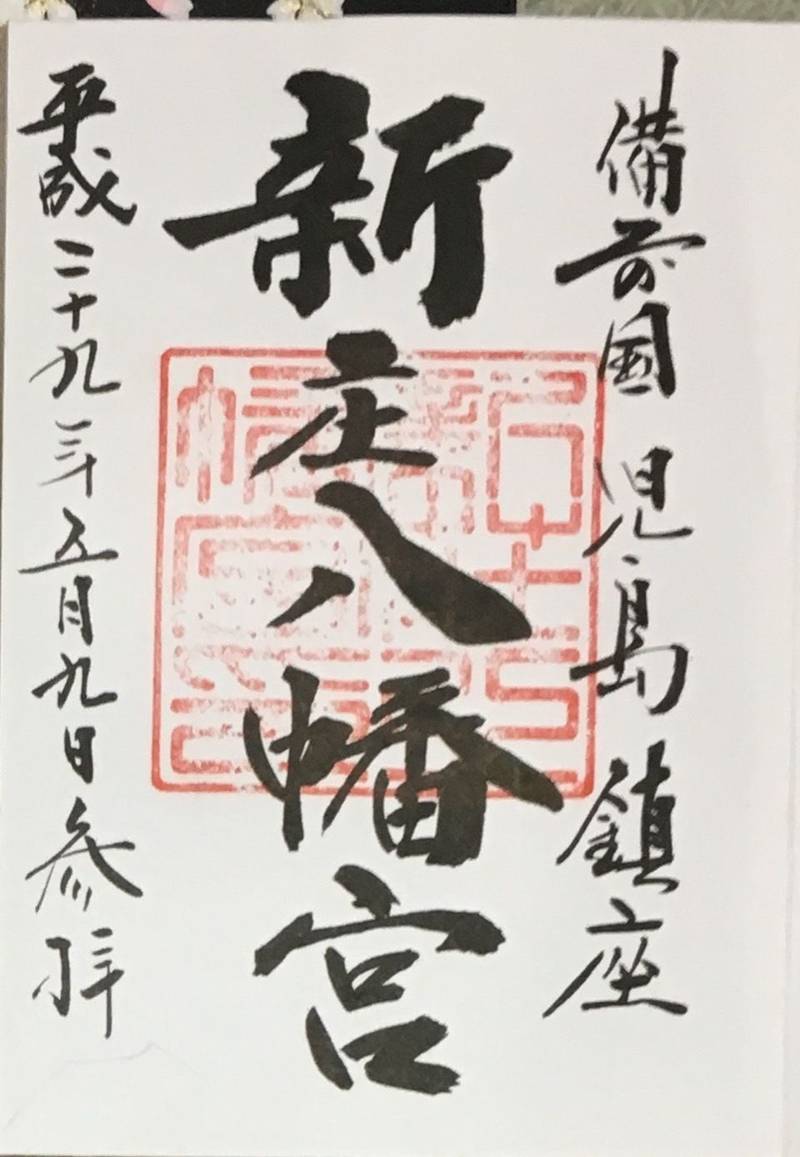 備前国児島鎮座
新庄八幡宮
平成二十九年五月九日参拝